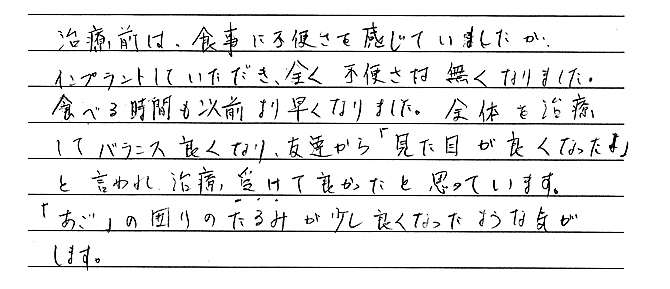 治療前は、食事に不便さを感じていましたが、
インプラントしていただき、全く不便さは無くなりました。
食べる時間も以前より早くなりました。全体を治療
してバランス良くなり、友達から「見た目が良くなったよ」
と言われ、治療、受けて良かったと思っています。
「あご」の囲りのたるみが少し良くなったような気が
します。